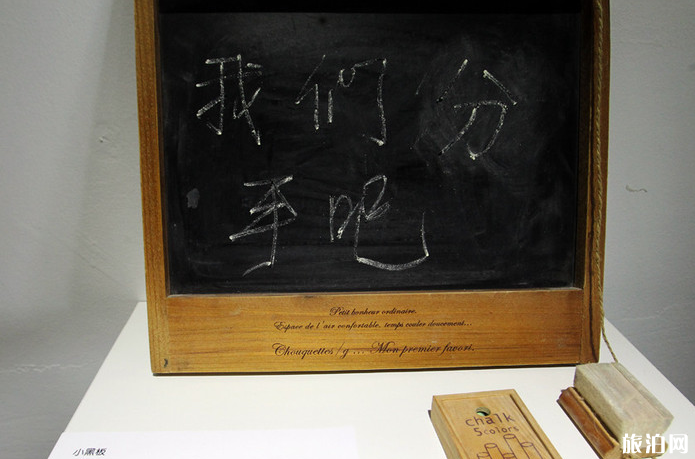 我们分
手吧
Petit bonheur ordinaire.
Espace de l'air confortable, temps couler doucement...
Chouquettes/g ... Mon premier favori.
chalk
5colors
小黑板
旅泊网